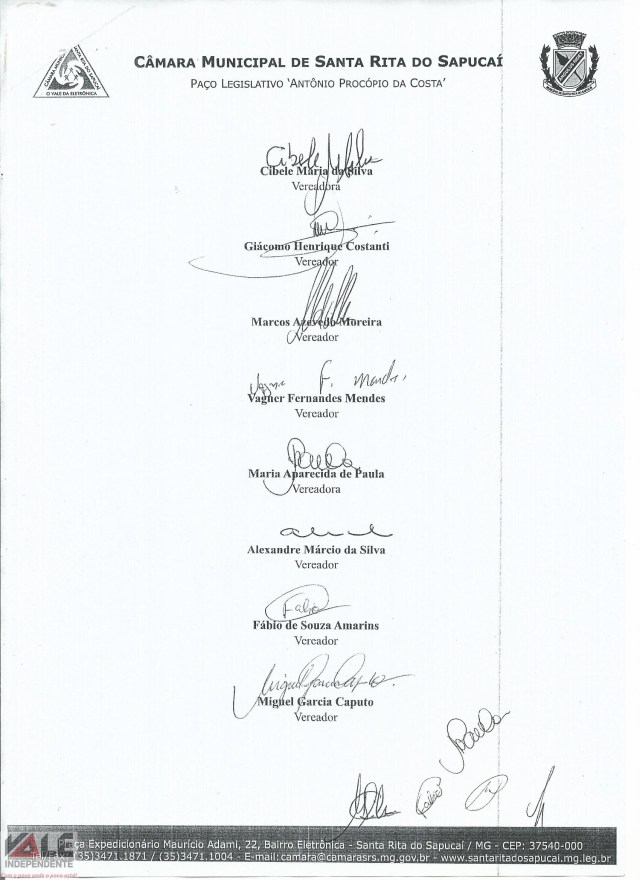 CÂMARA MUNICIPAL DE SANTA RITA DO SAPUCAÍ
PAÇO LEGISLATIVO 'ANTÔNIO PROCÓPIO DA COSTA'
O VALE DA ELETRÔNICA
Cibele
Cibele Maria da Silva
Vereadora
Giácomo Henrique Costanti
Vereador
Marcos Azevedo Moreira
Vereador
Vagner F. Mendes
Vagner Fernandes Mendes
Vereador
Paula
Maria Aparecida de Paula
Vereadora
Alexandre Márcio da Silva
Vereador
Fabio
Fábio de Souza Amarins
Vereador
Miguel Garcia Caputo
Miguel Garcia Caputo
Vereador
Expedicionário Maurício Adami, 22, Bairro Eletrônica - Santa Rita do Sapucaí / MG - CEP: 37540-000
(35)3471.1871 / (35)3471.1004 - E-mail: camara@camarasrs.mg.gov.br - www.santaritadosapucai.mg.leg.br
VALE
INDEPENDENTE